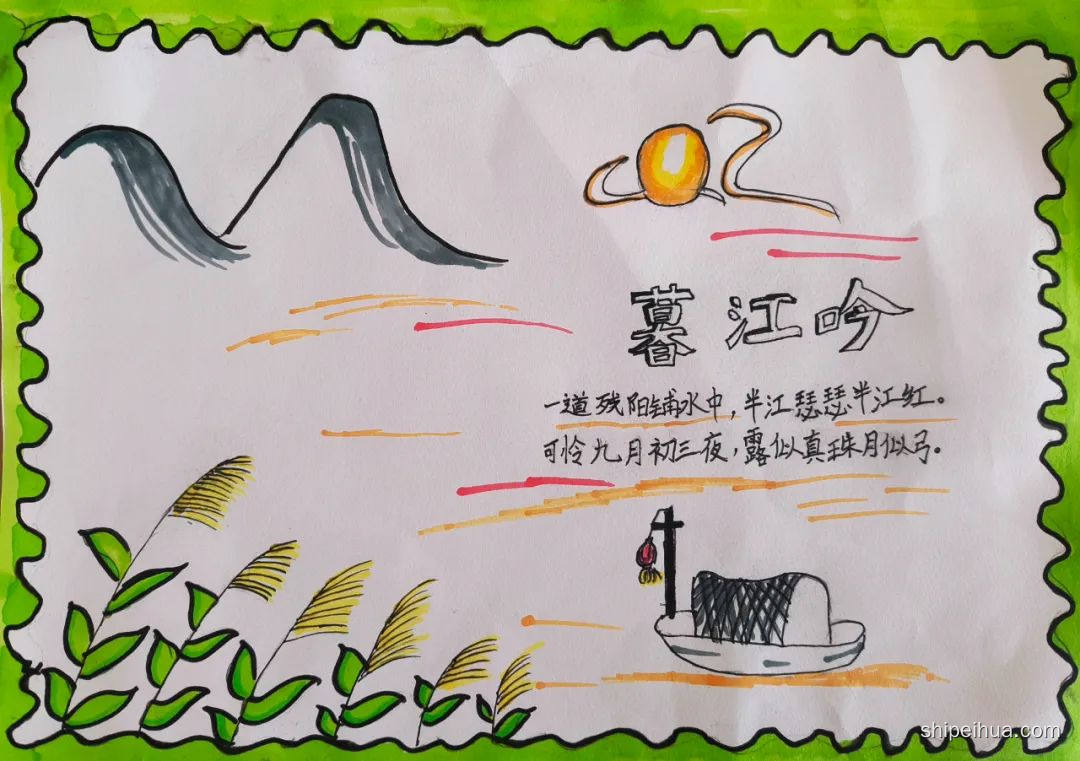 暮江吟
一道残阳铺水中，半江瑟瑟半江红。
可怜九月初三夜，露似真珠月似弓。
shipeihua.com